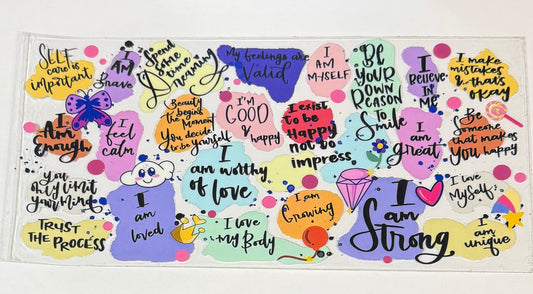 SELF
care is
important
I
AM
Brave
Spend
Some
time
Dreaming
My feelings are
Valid
I
AM
MYSELF
BE
YOUR
OWN
REASON
TO
Smile
I
Believe
IN
ME
I make
mistakes &
& thats
okay
I
Am
Enough
I
feel
calm
Beauty
begins
the Moment
You decide
to be yourself
I'm
GOOD
& happy
I exist
to be
Happy
not to
impress
I
am
great
Be
Someone
that makes
You happy
You
Only limit
your Mind
I
am
loved
I
am worthy
of love
I am
Growing
I
am
Strong
I love
Myself
TRUST
THE PROCESS
I love
My Body
I
am
unique